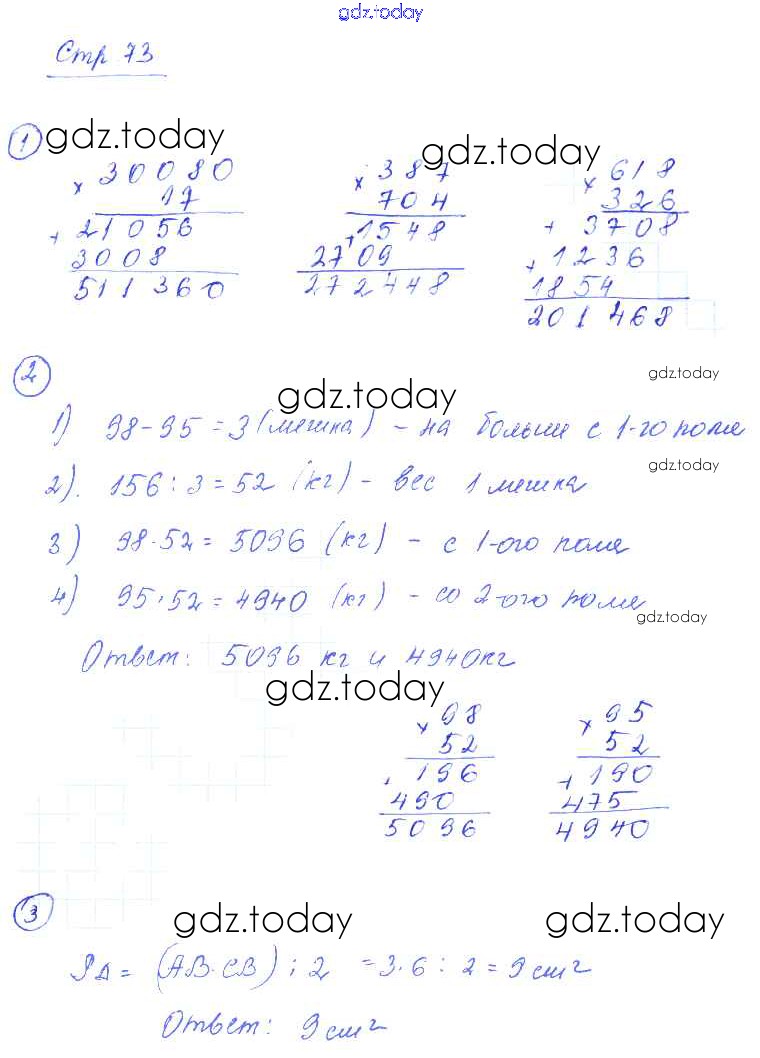 gdz.today
Стр 73
1 gdz.today gdz.today
× 30080
17
+ 21056
3008
511360
× 387
704
+ 1548
2709
272448
× 618
326
+ 3708
+ 1236
1854
201468
2
gdz.today
gdz.today
1) 98-95=3 (мешка) - на больше с 1-го поля
gdz.today
2). 156:3=52 (кг) - вес 1 мешка
3) 98·52=5096 (кг) - с 1-ого поля
4) 95·52=4940 (кг) - со 2-ого поля
gdz.today
Ответ: 5096 кг и 4940кг
gdz.today
× 98
52
+ 196
490
5096
× 95
52
+ 190
475
4940
3 gdz.today gdz.today
SΔ = (AB·CB) : 2 = 3·6 : 2 = 9 см²
Ответ: 9 см²